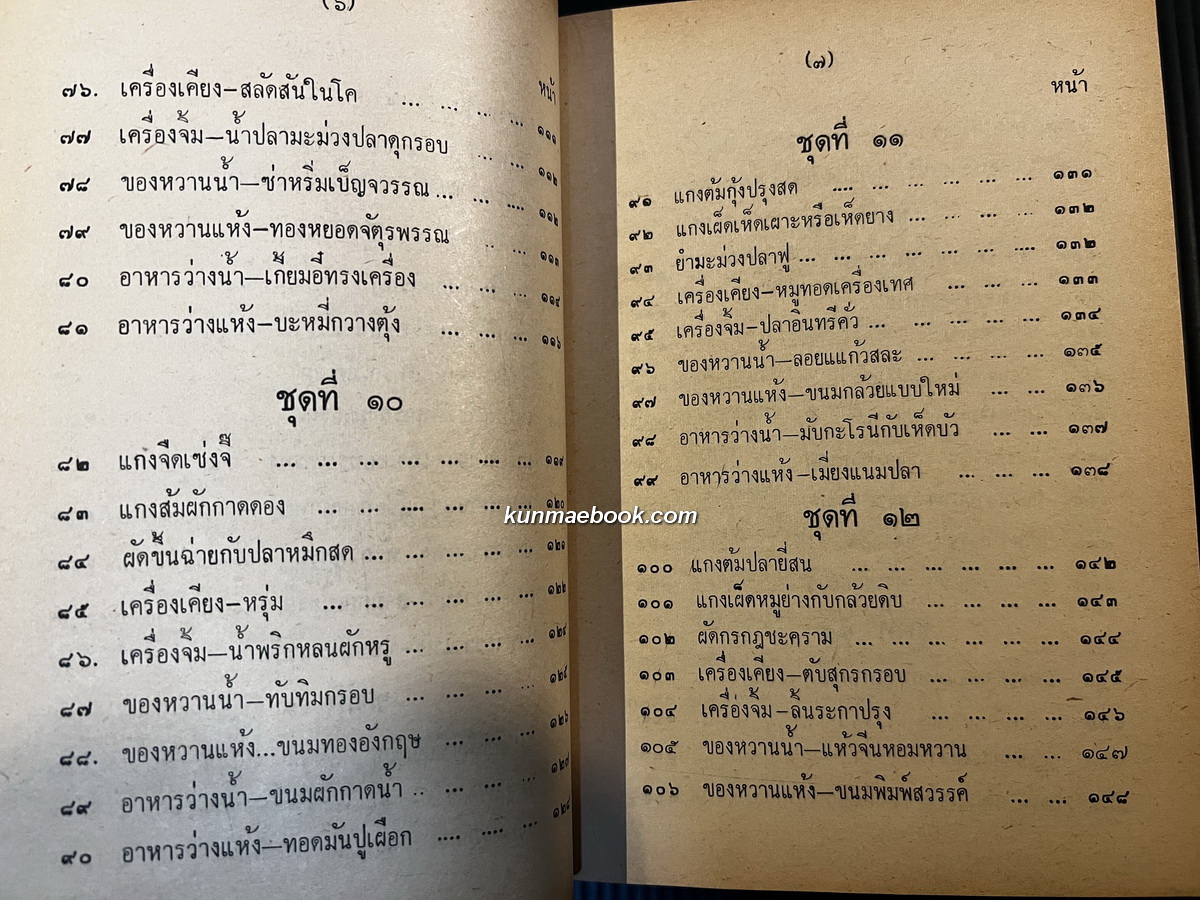 (๖)
หน้า
๗๖. เครื่องเคียง–สลัดสันในโค ... ... ... ... ๑๑๑
๗๗ เครื่องจิ้ม—น้ำปลามะม่วงปลาดุกรอบ ... ... ๑๑๒
๗๘ ของหวานน้ำ—ซ่าหริ่มเบ็ญจวรรณ ... ... ... .... ๑๑๒
๗๙ ของหวานแห้ง–ทองหยอดจัตุรพรรณ .. ... ... ๑๑๓
๘๐ อาหารว่างน้ำ—เกี้ยมอี๋ทรงเครื่อง ... ... ... ๑๑๔
๘๑ อาหารว่างแห้ง–บะหมี่กวางตุ้ง ... ... ... ๑๑๖
ชุดที่ ๑๐
๘๒ แกงจืดเซ่งจี๊ ... ... ... ... ... .... ... ๑๑๙
๘๓ แกงส้มผักกาดดอง ... ... .... ... ... ... ๑๒๐
๘๔ ผัดขึ้นฉ่ายกับปลาหมึกสด ... ... ... ... ... ๑๒๑
๘๕ เครื่องเคียง–หรุ่ม ... ... ... ... ... ... ๑๒๒
๘๖. เครื่องจิ้ม—น้ำพริกหลนผักหรู ... ... ... ... ๑๒๔
๘๗ ของหวานน้ำ—ทับทิมกรอบ ... ... ... ... ๑๒๕
๘๘. ของหวานแห้ง...ขนมทองอังกฤษ ... ... ... ๑๒๖
๘๙ อาหารว่างน้ำ—ขนมผักกาดน้ำ .. ... ... ... ๑๒๗
๙๐ อาหารว่างแห้ง—ทอดมันปูเผือก .... .... ... ๑๒๘
(๗)
หน้า
ชุดที่ ๑๑
๙๑ แกงต้มกุ้งปรุงสด .... ... ... ... ... ... ๑๓๑
๙๒ แกงเผ็ดเห็ดเผาะหรือเห็ดยาง ... ... ... ... ๑๓๒
๙๓ ยำมะม่วงปลาฟู ... ... ... ... ... ... .... ๑๓๒
๙๔ เครื่องเคียง—หมูทอดเครื่องเทศ ... ... ... ๑๓๓
๙๕ เครื่องจิ้ม–ปลาอินทรีคั่ว ... ... ... ... ... ๑๓๔
๙๖ ของหวานน้ำ–ลอยแแก้วสละ ... ... ... ... ๑๓๕
๙๗ ของหวานแห้ง–ขนมกล้วยแบบใหม่ ... ... ๑๓๖
๙๘ อาหารว่างน้ำ—มับกะโรนีกับเห็ดบัว ... ... ๑๓๗
๙๙ อาหารว่างแห้ง–เมี่ยงแนมปลา ... ... ... ๑๓๘
kunmaebook.com
ชุดที่ ๑๒
๑๐๐ แกงต้มปลายี่สน ... ... ... ... ... ... ๑๔๒
๑๐๑ แกงเผ็ดหมูย่างกับกล้วยดิบ ... ... ... ... ๑๔๓
๑๐๒ ผัดกรกฎชะคราม ... ... ... ... ... ... ๑๔๔
๑๐๓ เครื่องเคียง—ตับสุกรกรอบ ... ... ... ... ๑๔๕
๑๐๔ เครื่องจิ้ม–ลิ้นระกาปรุง ... ... ... ... ๑๔๖
๑๐๕ ของหวานน้ำ—แห้วจีนหอมหวาน ... ... ๑๔๗
๑๐๖ ของหวานแห้ง—ขนมพิมพ์สวรรค์ ... ... ๑๔๘